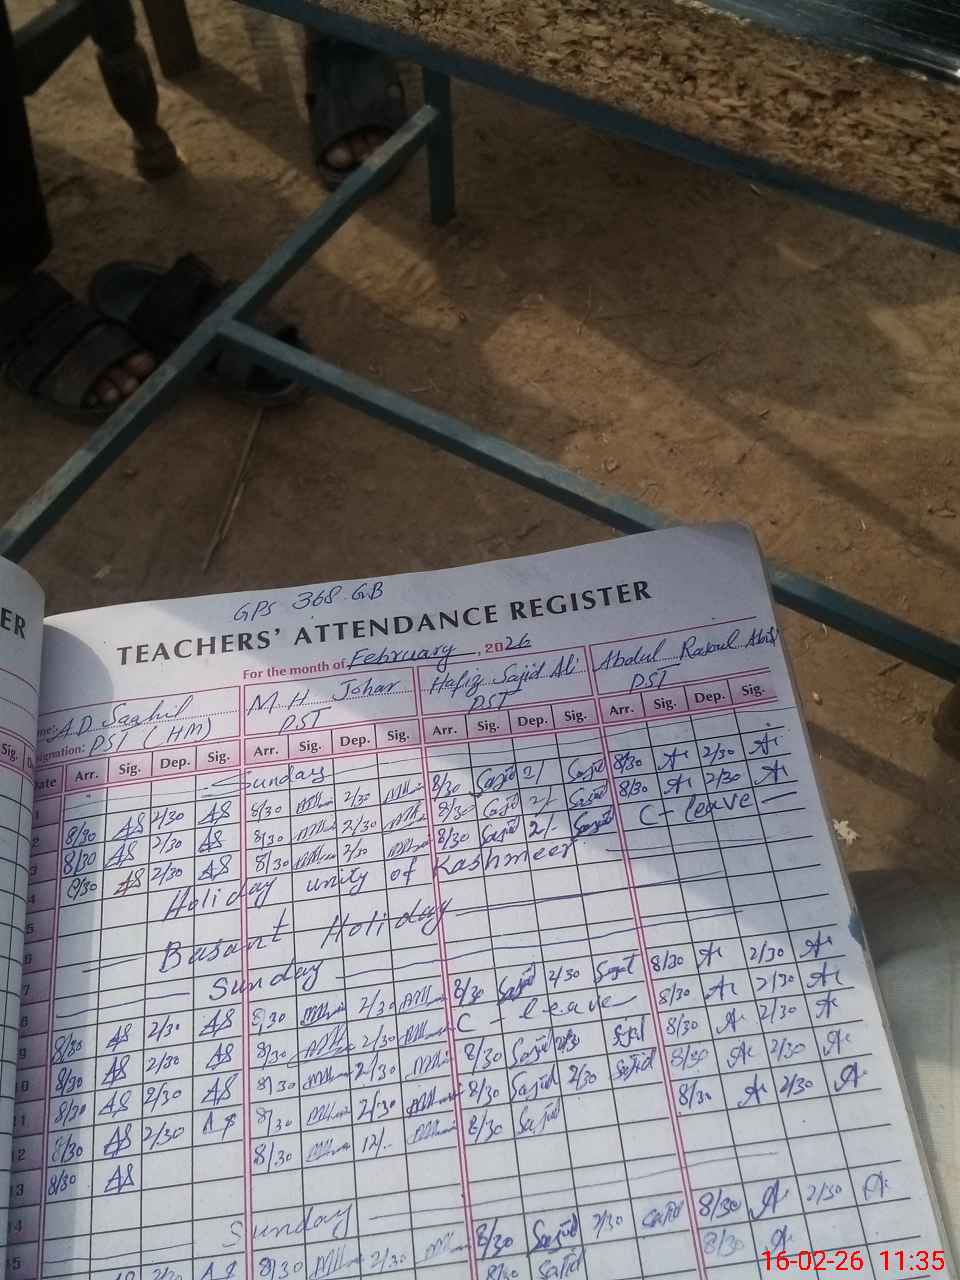 ER
GPS 368 GB
TEACHERS' ATTENDANCE REGISTER
For the month of February, 2026
me: A D Saahil M H Johar Hafiz Sajid Ali Abdul Rasoul
signation: PST (HM) PST PST PST
Sig. D
ate Arr. Sig. Dep. Sig. Arr. Sig. Dep. Sig. Arr. Sig. Dep. Sig. Arr. Sig. Dep. Sig.
1 Sunday
2 8/30 AS 2/30 AS 8/30 2/30 8/30 Sajid 2/ Sajid 8/30 Ar 2/30 Ar
3 8/30 AS 2/30 AS 8/30 2/30 8/30 Sajid 2/- Sajid 8/30 Ar 2/30 Ar
4 8/30 AS 2/30 AS 8/30 2/30 8/30 Sajid 2/- Sajid C-leave
5 Holiday unity of Kashmeer
6 Basant Holiday
7
8 Sunday
9 8/30 AS 2/30 AS 8/30 2/30 8/30 Sajid 2/30 Sajid 8/30 Ar 2/30 Ar
10 8/30 AS 2/30 AS 8/30 2/30 C-leave 8/30 Ar 2/30 Ar
11 8/30 AS 2/30 AS 8/30 2/30 8/30 Sajid 2/30 Sajid 8/30 Ar 2/30 Ar
12 8/30 AS 2/30 AS 8/30 2/30 8/30 Sajid 2/30 Sajid 8/30 Ar 2/30 Ar
13 8/30 AS 8/30 12/- 8/30 Sajid 8/30 Ar 2/30 Ar
14
15 Sunday
AS 2/30 AS 8/30 2/30 8/30 Sajid 2/30 Sajid 8/30 Ar 2/30 Ar
8/30 Sajid 8/30 Ar
16-02-26 11:35